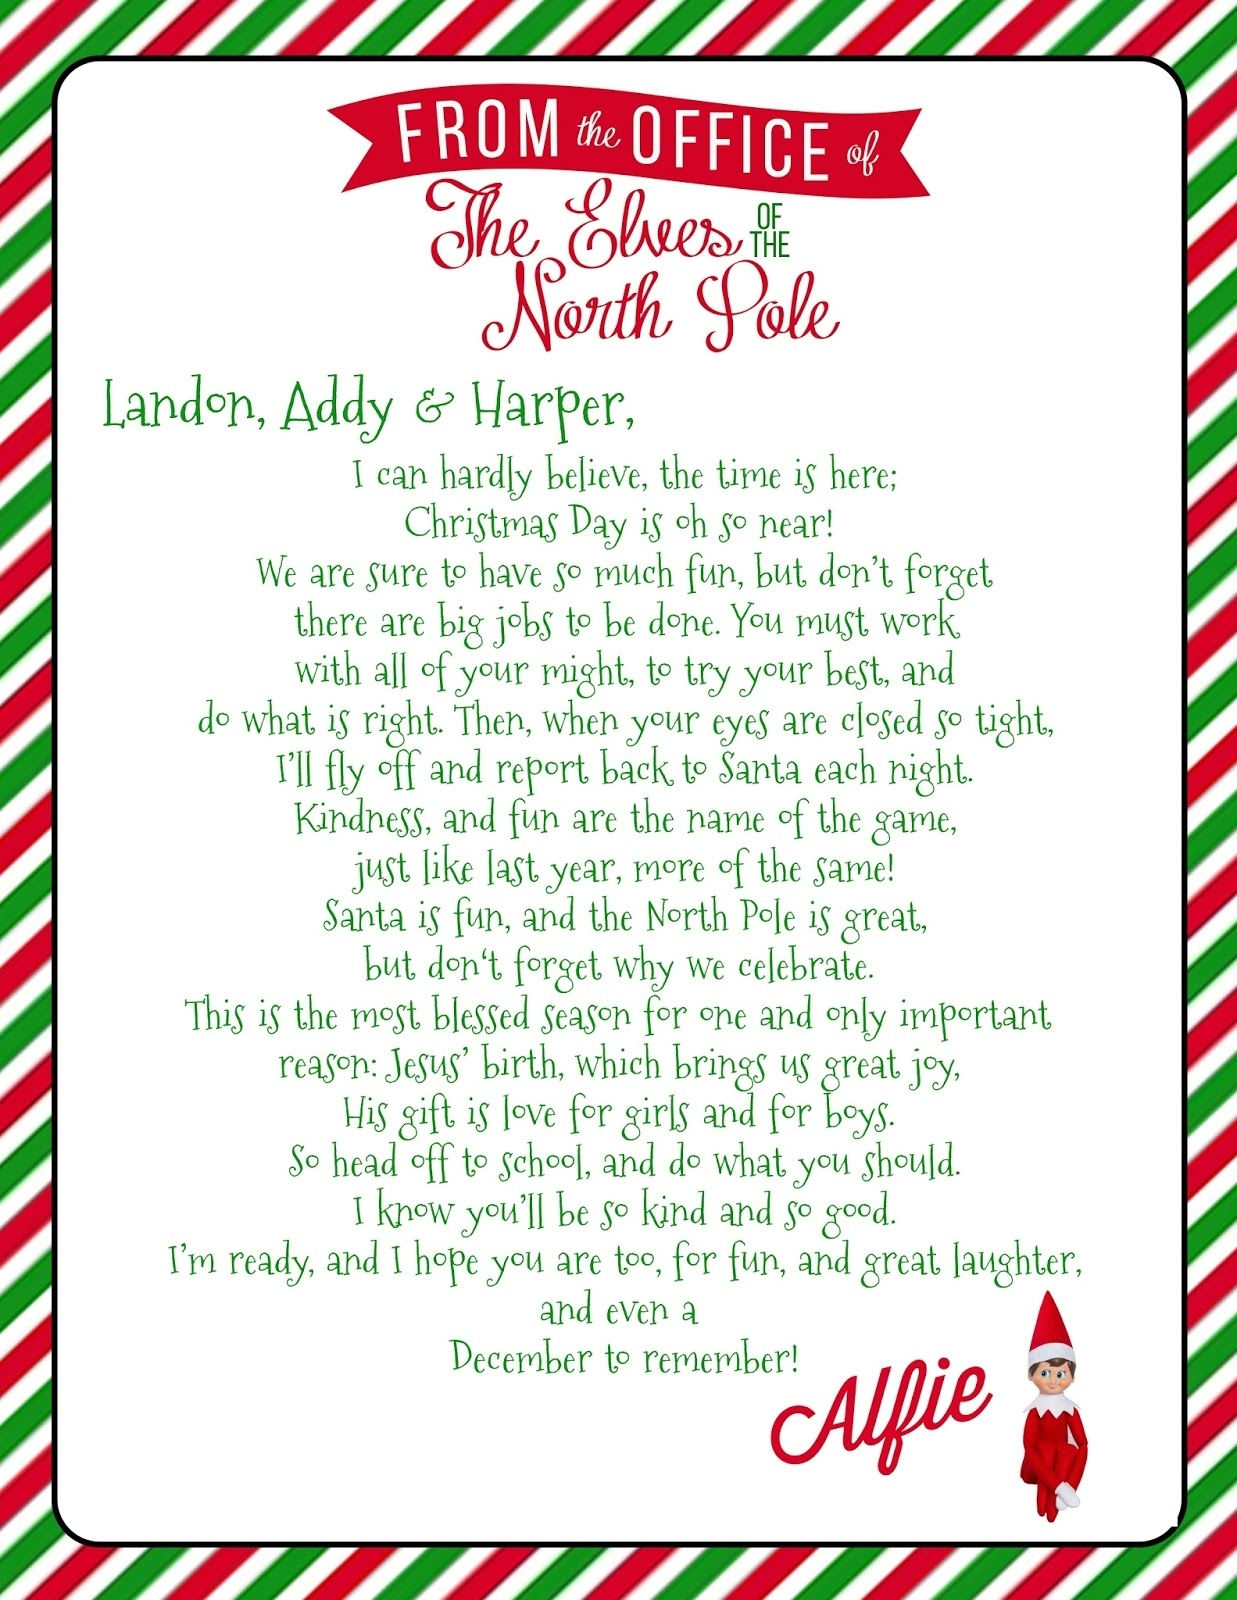 FROM the OFFICE of
The Elves OF THE
North Pole
Landon, Addy & Harper,
I can hardly believe, the time is here;
Christmas Day is oh so near!
We are sure to have so much fun, but don't forget
there are big jobs to be done. You must work
with all of your might, to try your best, and
do what is right. Then, when your eyes are closed so tight,
I'll fly off and report back to Santa each night.
Kindness, and fun are the name of the game,
just like last year, more of the same!
Santa is fun, and the North Pole is great,
but don‘t forget why we celebrate.
This is the most blessed season for one and only important
reason: Jesus' birth, which brings us great joy,
His gift is love for girls and for boys.
So head off to school, and do what you should.
I know you'll be so kind and so good.
I'm ready, and I hope you are too, for fun, and great laughter,
and even a
December to remember!
Alfie